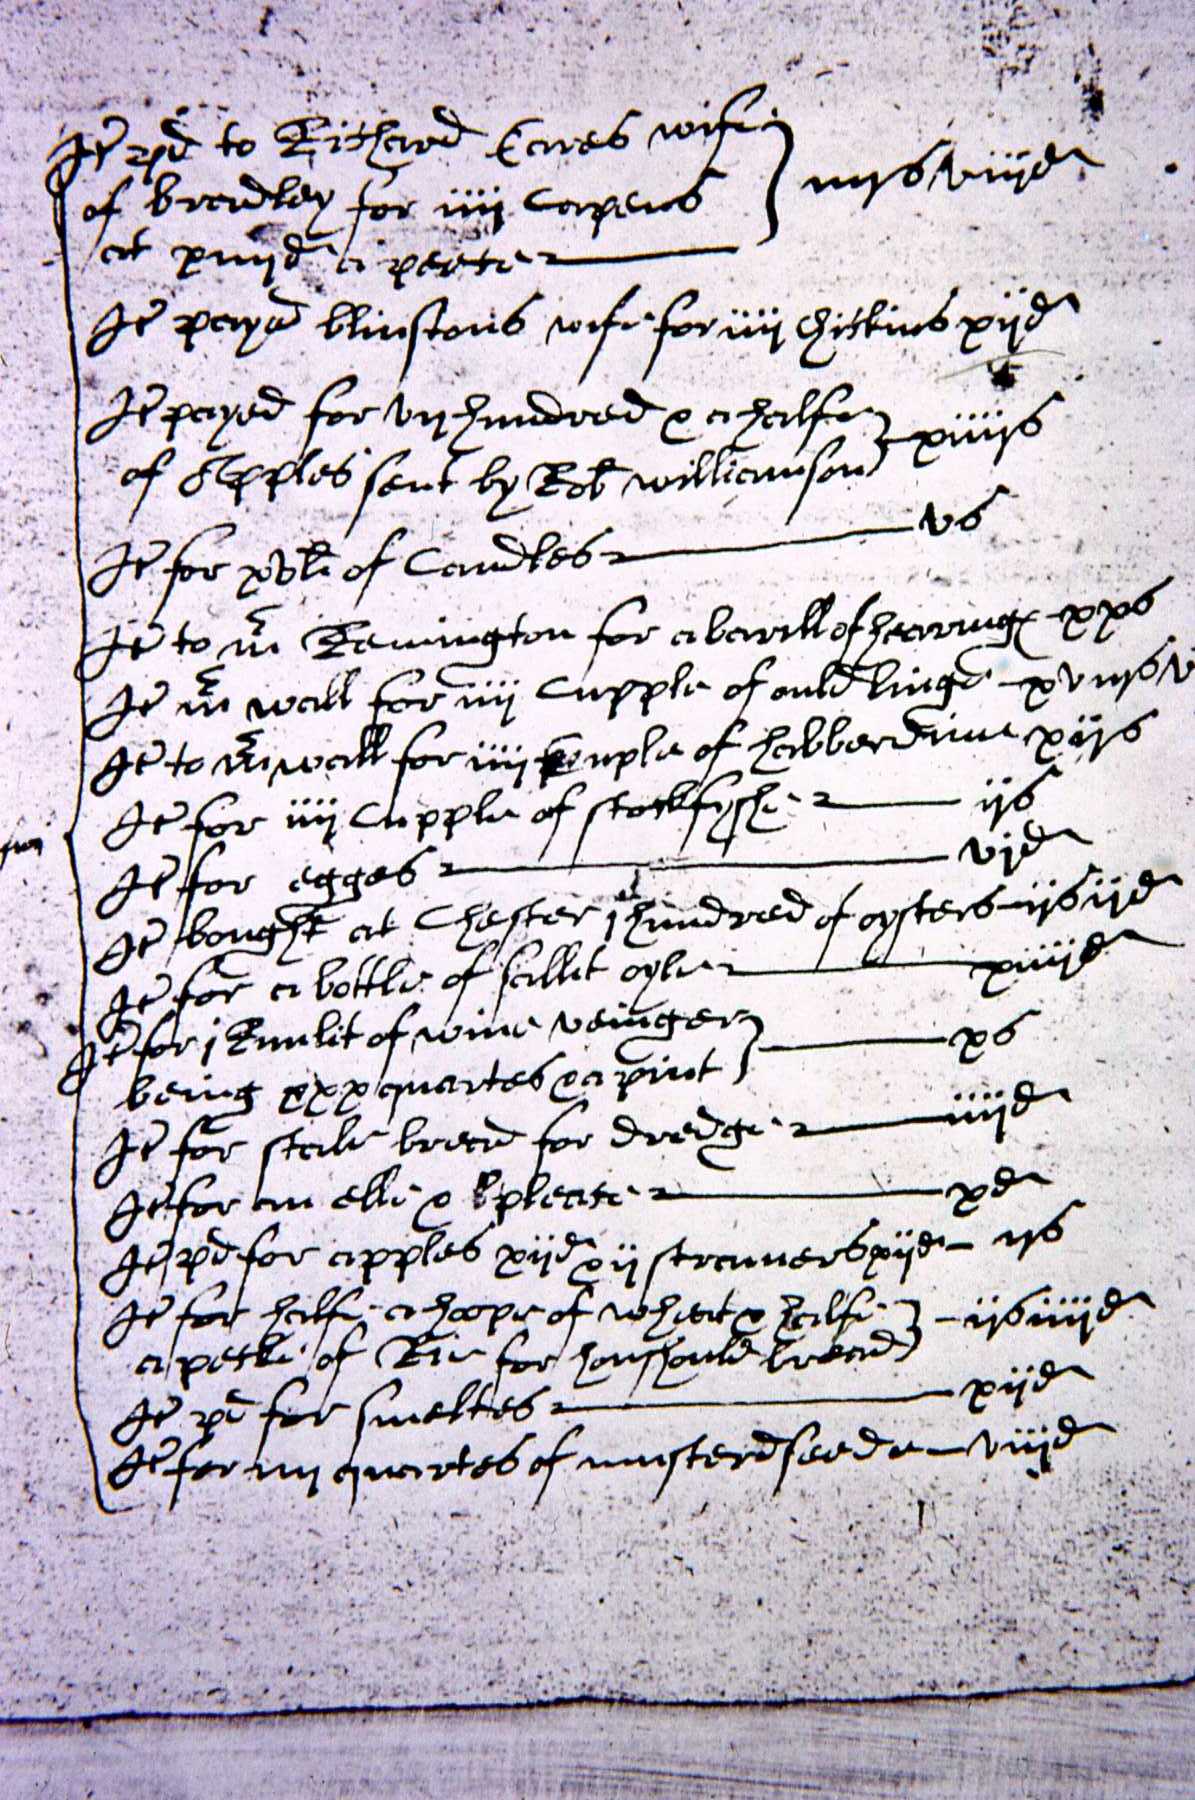 It pd to Richard Eaves wife
of bradley for iiij Capens iiijs viijd
at xiiijd a peece
It payd blinstons wife for iiij Chickins xijd
It payed for vij hundred & a halfe
of Apples sent by Rob williamson xiiijs
It for xvli of Candles vs
It to mr Remington for a barill of hearringe xxs
It mr wall for iiij Cupple of ould linge xviijs
It to mr wall for iiij Cuple of habberdine xijs
It for iiij Cupple of stockfyshe ijs
It for egges vjd
It bought at Chester j hundred of oysters ijs ijd
It for a bottle of sallit oyle xiiijd
It for j Runlit of wine veinger
being xxx quartes & a pint xs
It for stale bread for dredge iiijd
It for an elle & pleate xd
It pd for apples xijd & ij straners xijd ijs
It for halfe a hoope of wheat & halfe
a pecke of Rie for houshould bread ijs iiijd
It pd for smeltes xijd
It for iiij quartes of musterdseede viijd